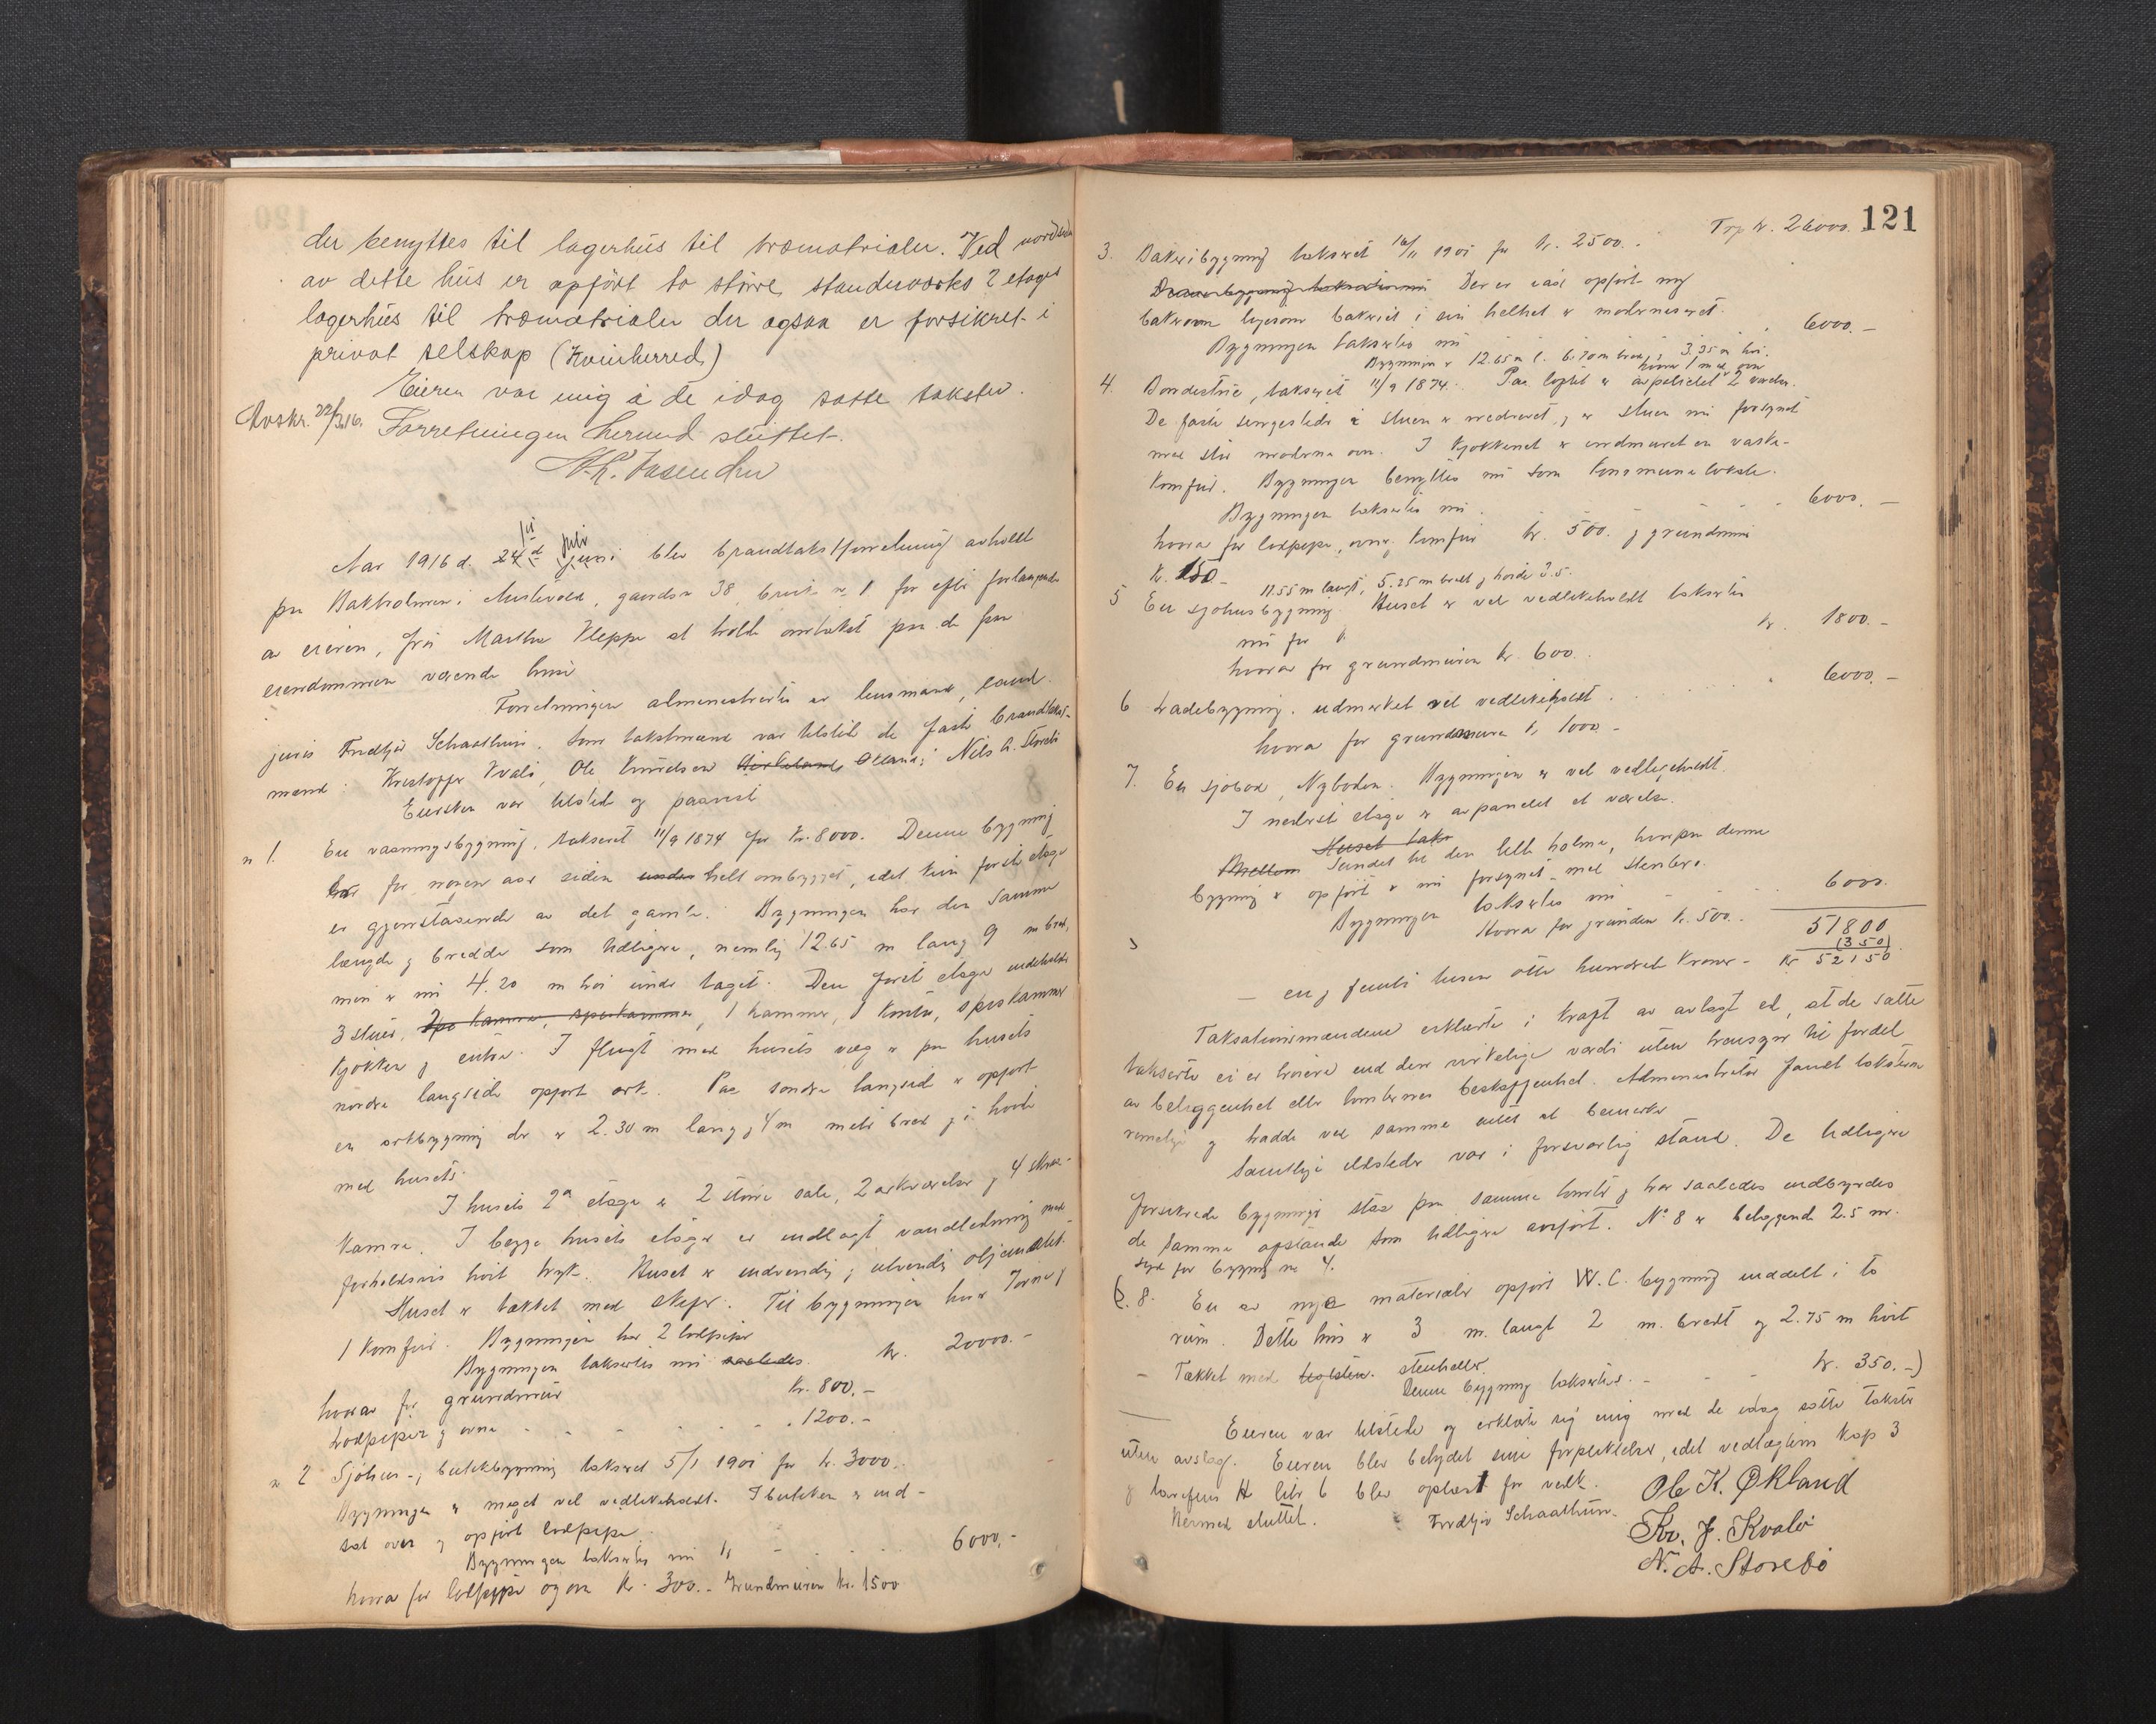 der benyttes til lagerhus til træmatrialer. Ved nordsiden
av dette hus er opført to større standværks 2 etages
lagerhus til træmatrialer der ogsaa er forsikret i
privat selskap (Kvinherred)
Eieren var enig i de idag satte takster.
Avskr. 22/3.16. Forretningen hermed sluttet.
Aar 1916 d. 24d juni 1ste juli blev brandtakstforretning avholdt
paa Bakholmen i Austevold, gaardsn 38 bruks n 1 for efter forlangende
av eieren, fru Martha Kleppe at holde omtakst paa de paa
eiendommen værende huse
Forretningen almenestrertes av lensmand, cand.
juris Fredtjof Schaathun. Som takstmænd var tilstede de faste brandtakst-
mænd Kristoffer Kvale, Ole Knudsen Økland, Nils A. Storebø
Eiersken var tilstede og paaviste
n 1. En vaaningsbygning, takseret 11/9 1874 for kr. 8000. Denne bygning
har for nogen aar siden under helt ombygget, idet kun første etage
er gjenstaaende av det gamle. Bygningen har den samme
længde og bredde som tidligere, nemlig 12.65 m lang 9 m bred,
men er nu 4.20 m høi under taget. Den første etage indeholder
3 stuer, 1 kammer, 1 kontor, spiskammer
kjøkken og entre. I flugt med husets væg er paa husets
nordre langside opført ark. Paa søndre langside er opført
en arkbygning der er 2.30 m lang og 4 m meter bred og i høide
med husets.
I husets 2den etage er 2 større sale, 2 arkværelser og 4 skraa-
kamre. I begge husets etager er indlagt vandledning med
forholdsvis høit tryk. Huset er indvendig og utvendig oljemalet.
Huset er tækket med skifer. Til bygningen hører 7 ovne og
1 komfur. Bygningen har 2 lodpiper
Bygningen takseres nu saaledes. kr. 20000.-
hvorav for grundmur kr. 800.-
Lodpiper og ovne - - - - . 1200.-
n 2 Sjøhus- og butikbygning takseret 5/1 1901 for kr. 3000.
Bygningen er meget vel vedlikeholdt. I butikken er ind-
sat ovn og opført lodpipe.
Bygningen takseres nu kr 6000.-
hvorav for lodpipe og ovn kr. 300.- Grundmuren kr. 1500
Trp kr. 26000. 121
3. Bakeribygning takseret 16/11 1901 for kr. 2500.
Der er i aar opført ny
bakerovn ligesom bakeriet i sin helhet er moderniseret.
Bygningen takseres nu 6000.-
Bygningen er 12.65 m l. 6.70 m bred, 3.35 m høi.
4. Bondestue, takseret 11/9 1874. Paa loftet er avpanelet 2 værelser. hvorav 1 med ovn
De faste sengesteder i stuen er nedrevet, og er stuen nu forsynet
med stor moderne ovn. I kjøkkenet er indmuret en vaske-
komfur. Bygningen benyttes nu som kommunelokale.
Bygningen takseres nu. 6000.-
hvorav for lodpipe, ovner, komfur kr. 500. og grundmur
kr. 150.-
11.55 m langt, 5.25 m bredt og høide 3.5.
5 En sjøhusbygning. Huset er vel vedlikeholdt takseres
nu for kr. kr. 1800.-
hvorav for grundmuren kr. 600.
6 Ladebygning. udmerket vel vedlikeholdt. 6000.-
hvorav for grundmuren kr 1000.-
7. En sjøbod, Nyboden. Bygningen er vel vedligeholdt.
I nederste etage er avpanelet et værelse.
Huset taks
Mellem Sundet til den lille holme, hvorpaa denne
bygning er opført er nu forsynet med stenbro.
Bygningen takseres nu 6000.
Hvorav for grunden kr. 500.- 51800
(350)
- en og femti tusen otte hundrede kroner - kr 52150
Taksationsmændene erklærte i kraft av avlagt ed, at de satte
takster ei er høiere end den virkelige værdi uten hensyn til fordel
av beliggenhet eller tomternes beskaffenhet. Administrator fandt taksterne
rimelige og hadde ved samme intet at bemerke
Samtlige ildsteder var i forsvarlig stand. De tidligere
forsikrede bygninger staar paa samme tomter og har saaledes indbyrdes
de samme avstande som tidligere anført. No 8 er beliggende 2.5 m.
syd for bygning nr 4.
(n. 8. En av nye materialer opført W.C. bygning inddelt i to
rum. Dette hus er 3 m. langt 2 m. bredt og 2.75 m høit
- Tækket med teglsten. stenheller.
Denne bygning takseres. - - - kr. 350.-)
Eieren var tilstede og erklærte sig enig med de idag satte takster
uten avslag. Eieren blev betydet sine forpliktelser, idet vedtægtens kap 3
og tarifens H litr b blev oplæst for vedk.
Hermed sluttet. Fredtjov Schaathun.
Ole K. Økland
Kr. J. Kvale
N. A. Storebø